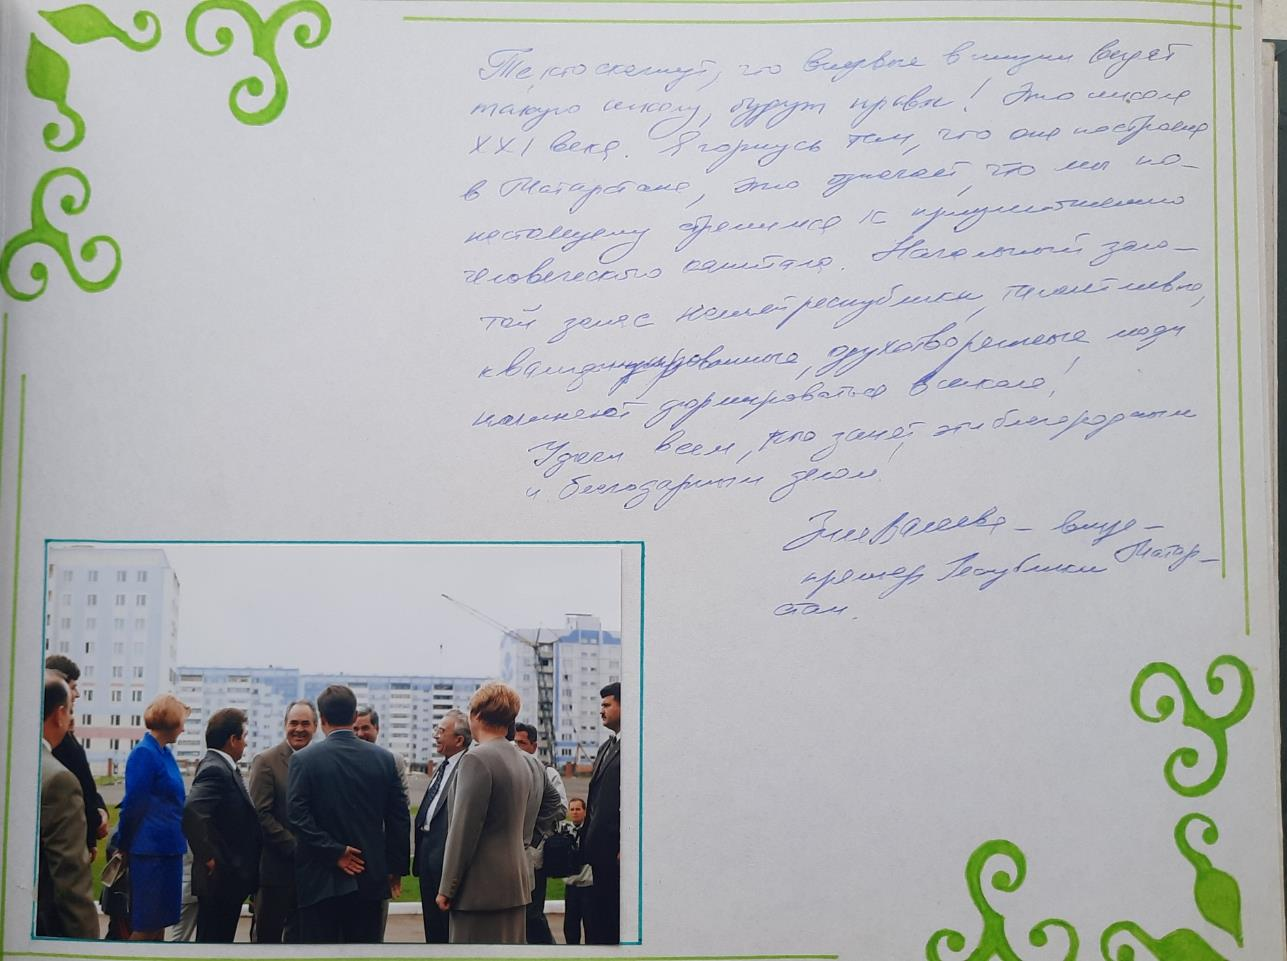 Те, кто скажут, что впервые в жизни видят
такую школу, будут правы! Это школа
XXI века. Я горжусь тем, что она построена
в Татарстане, это означает, что мы по-
настоящему стремимся к приумножению
человеческого капитала. Начальный золо-
той запас нашей республики, талантливые,
квалифицированные, одухотворенные люди
начинают формироваться в школе!
Удачи всем, кто занят этим благородным
и благодарным делом!
Зиля Валеева – вице-
премьер Республики Татар-
стан.